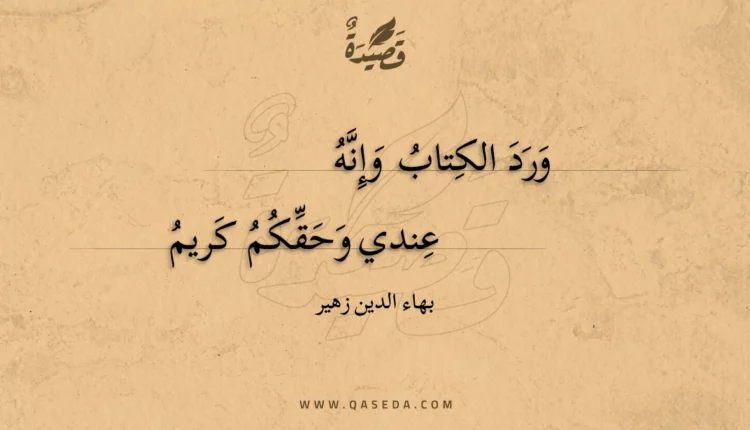 قَصِيدَةٌ
وَرَدَ الكِتابُ وَإِنَّهُ
عِندي وَحَقِّكُمُ كَريمُ
بهاء الدين زهير
WWW.QASEDA.COM